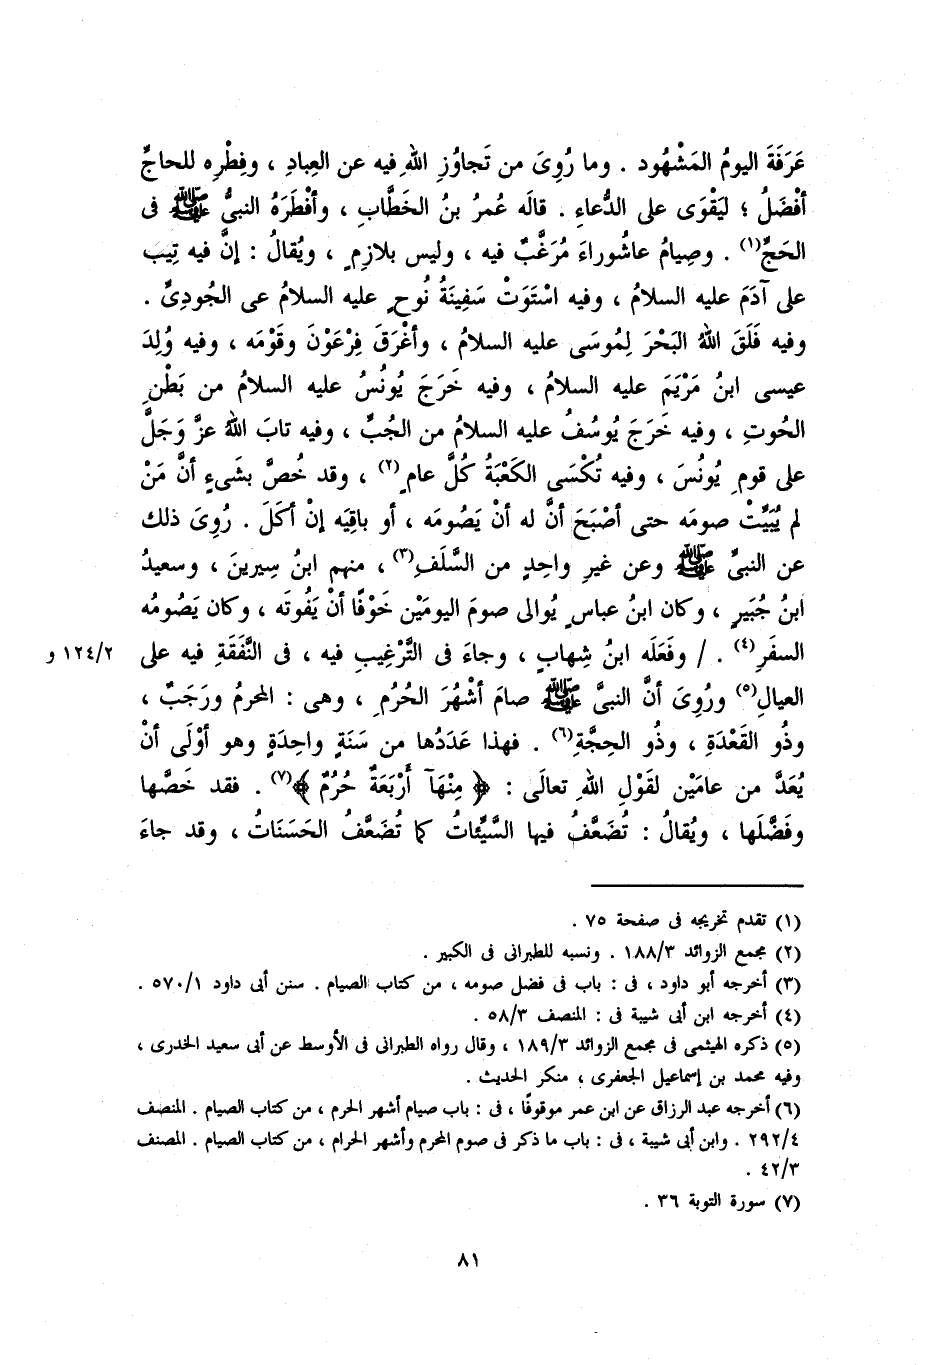 عَرَفَةَ اليومُ المَشْهُود . وما رُوِىَ من تَجاوُزِ اللهِ فيه عن العِبادِ ، وفِطْرِه للحاجِّ
أفْضَلُ ؛ ليَقْوَى على الدُّعاءِ . قالَه عُمرُ بنُ الخَطَّاب ، وأفْطَرَهُ النبىُّ ﷺ فى
الحَجِّ(١) . وصِيامُ عاشُوراءَ مُرَغَّبٌ فيه ، وليس بلازمٍ ، ويُقالُ : إنَّ فيه تِيبَ
على آدَمَ عليه السلامُ ، وفيه اسْتَوَتْ سَفِينَةُ نُوحٍ عليه السلامُ عى الجُودِىِّ .
وفيه فَلَقَ اللهُ البَحْرَ لِمُوسَى عليه السلامُ ، وأغْرَقَ فِرْعَوْنَ وقَوْمَه ، وفيه وُلِدَ
عيسى ابنُ مَرْيَمَ عليه السلامُ ، وفيه خَرَجَ يُونُسُ عليه السلامُ من بَطْنِ
الحُوتِ ، وفيه خَرَجَ يُوسُفُ عليه السلامُ من الجُبِّ ، وفيه تابَ اللهُ عزَّ وَجَلَّ
على قومِ يُونُسَ ، وفيه تُكْسَى الكَعْبَةُ كُلَّ عامٍ(٢) ، وقد خُصَّ بشَىءٍ أنَّ مَنْ
لم يُبَيِّتْ صومَه حتى أصْبَحَ أنَّ له أنْ يَصُومَه ، أو باقِيَه إنْ أكَلَ . رُوِىَ ذلك
عن النبىِّ ﷺ وعن غيرِ واحِدٍ من السَّلَفِ(٣) ، منهم ابنُ سِيرينَ ، وسعيدُ
ابنُ جُبَيرٍ ، وكان ابنُ عباسٍ يُوالى صومَ اليومَيْن خَوْفًا أنْ يَفُوتَه ، وكان يَصُومُه
السفَرِ(٤) . / وفَعَلَه ابنُ شِهابٍ ، وجاءَ فى التَّرْغِيبِ فيه ، فى النَّفَقَةِ فيه على
١٢٤/٢ و
العيالِ(٥) ورُوِىَ أنَّ النبىَّ ﷺ صامَ أشْهُرَ الحُرُمِ ، وهى : المحرمُ ورَجَبٌ ،
وذُو القَعْدَةِ ، وذُو الحِجَّةِ(٦) . فهذا عَدَدُها من سَنَةٍ واحِدَةٍ وهو أوْلَى أنْ
يُعَدَّ من عامَيْن لقَوْلِ اللهِ تعالَى : ﴿ مِنْهَآ أَرْبَعَةٌ حُرُمٌ ﴾(٧) . فقد خَصَّها
وفَضَّلَها ، ويُقالُ : تُضَعَّفُ فيها السَّيِّئاتُ كما تُضَعَّفُ الحَسَنَاتُ ، وقد جاءَ
(١) تقدم تخريجه فى صفحة ٧٥ .
(٢) مجمع الزوائد ١٨٨/٣ . ونسبه للطبرانى فى الكبير .
(٣) أخرجه أبو داود ، فى : باب فى فضل صومه ، من كتاب الصيام . سنن أبى داود ٥٧٠/١ .
(٤) أخرجه ابن أبى شيبة فى : المنصف ٥٨/٣ .
(٥) ذكره الهيثمى فى مجمع الزوائد ١٨٩/٣ ، وقال رواه الطبرانى فى الأوسط عن أبى سعيد الخدرى ،
وفيه محمد بن إسماعيل الجعفرى ، منكر الحديث .
(٦) أخرجه عبد الرزاق عن ابن عمر موقوفًا ، فى : باب صيام أشهر الحرم ، من كتاب الصيام . المنصف
٢٩٢/٤ . وابن أبى شيبة ، فى : باب ما ذكر فى صوم المحرم وأشهر الحرام ، من كتاب الصيام . المصنف
٤٢/٣ .
(٧) سورة التوبة ٣٦ .
٨١